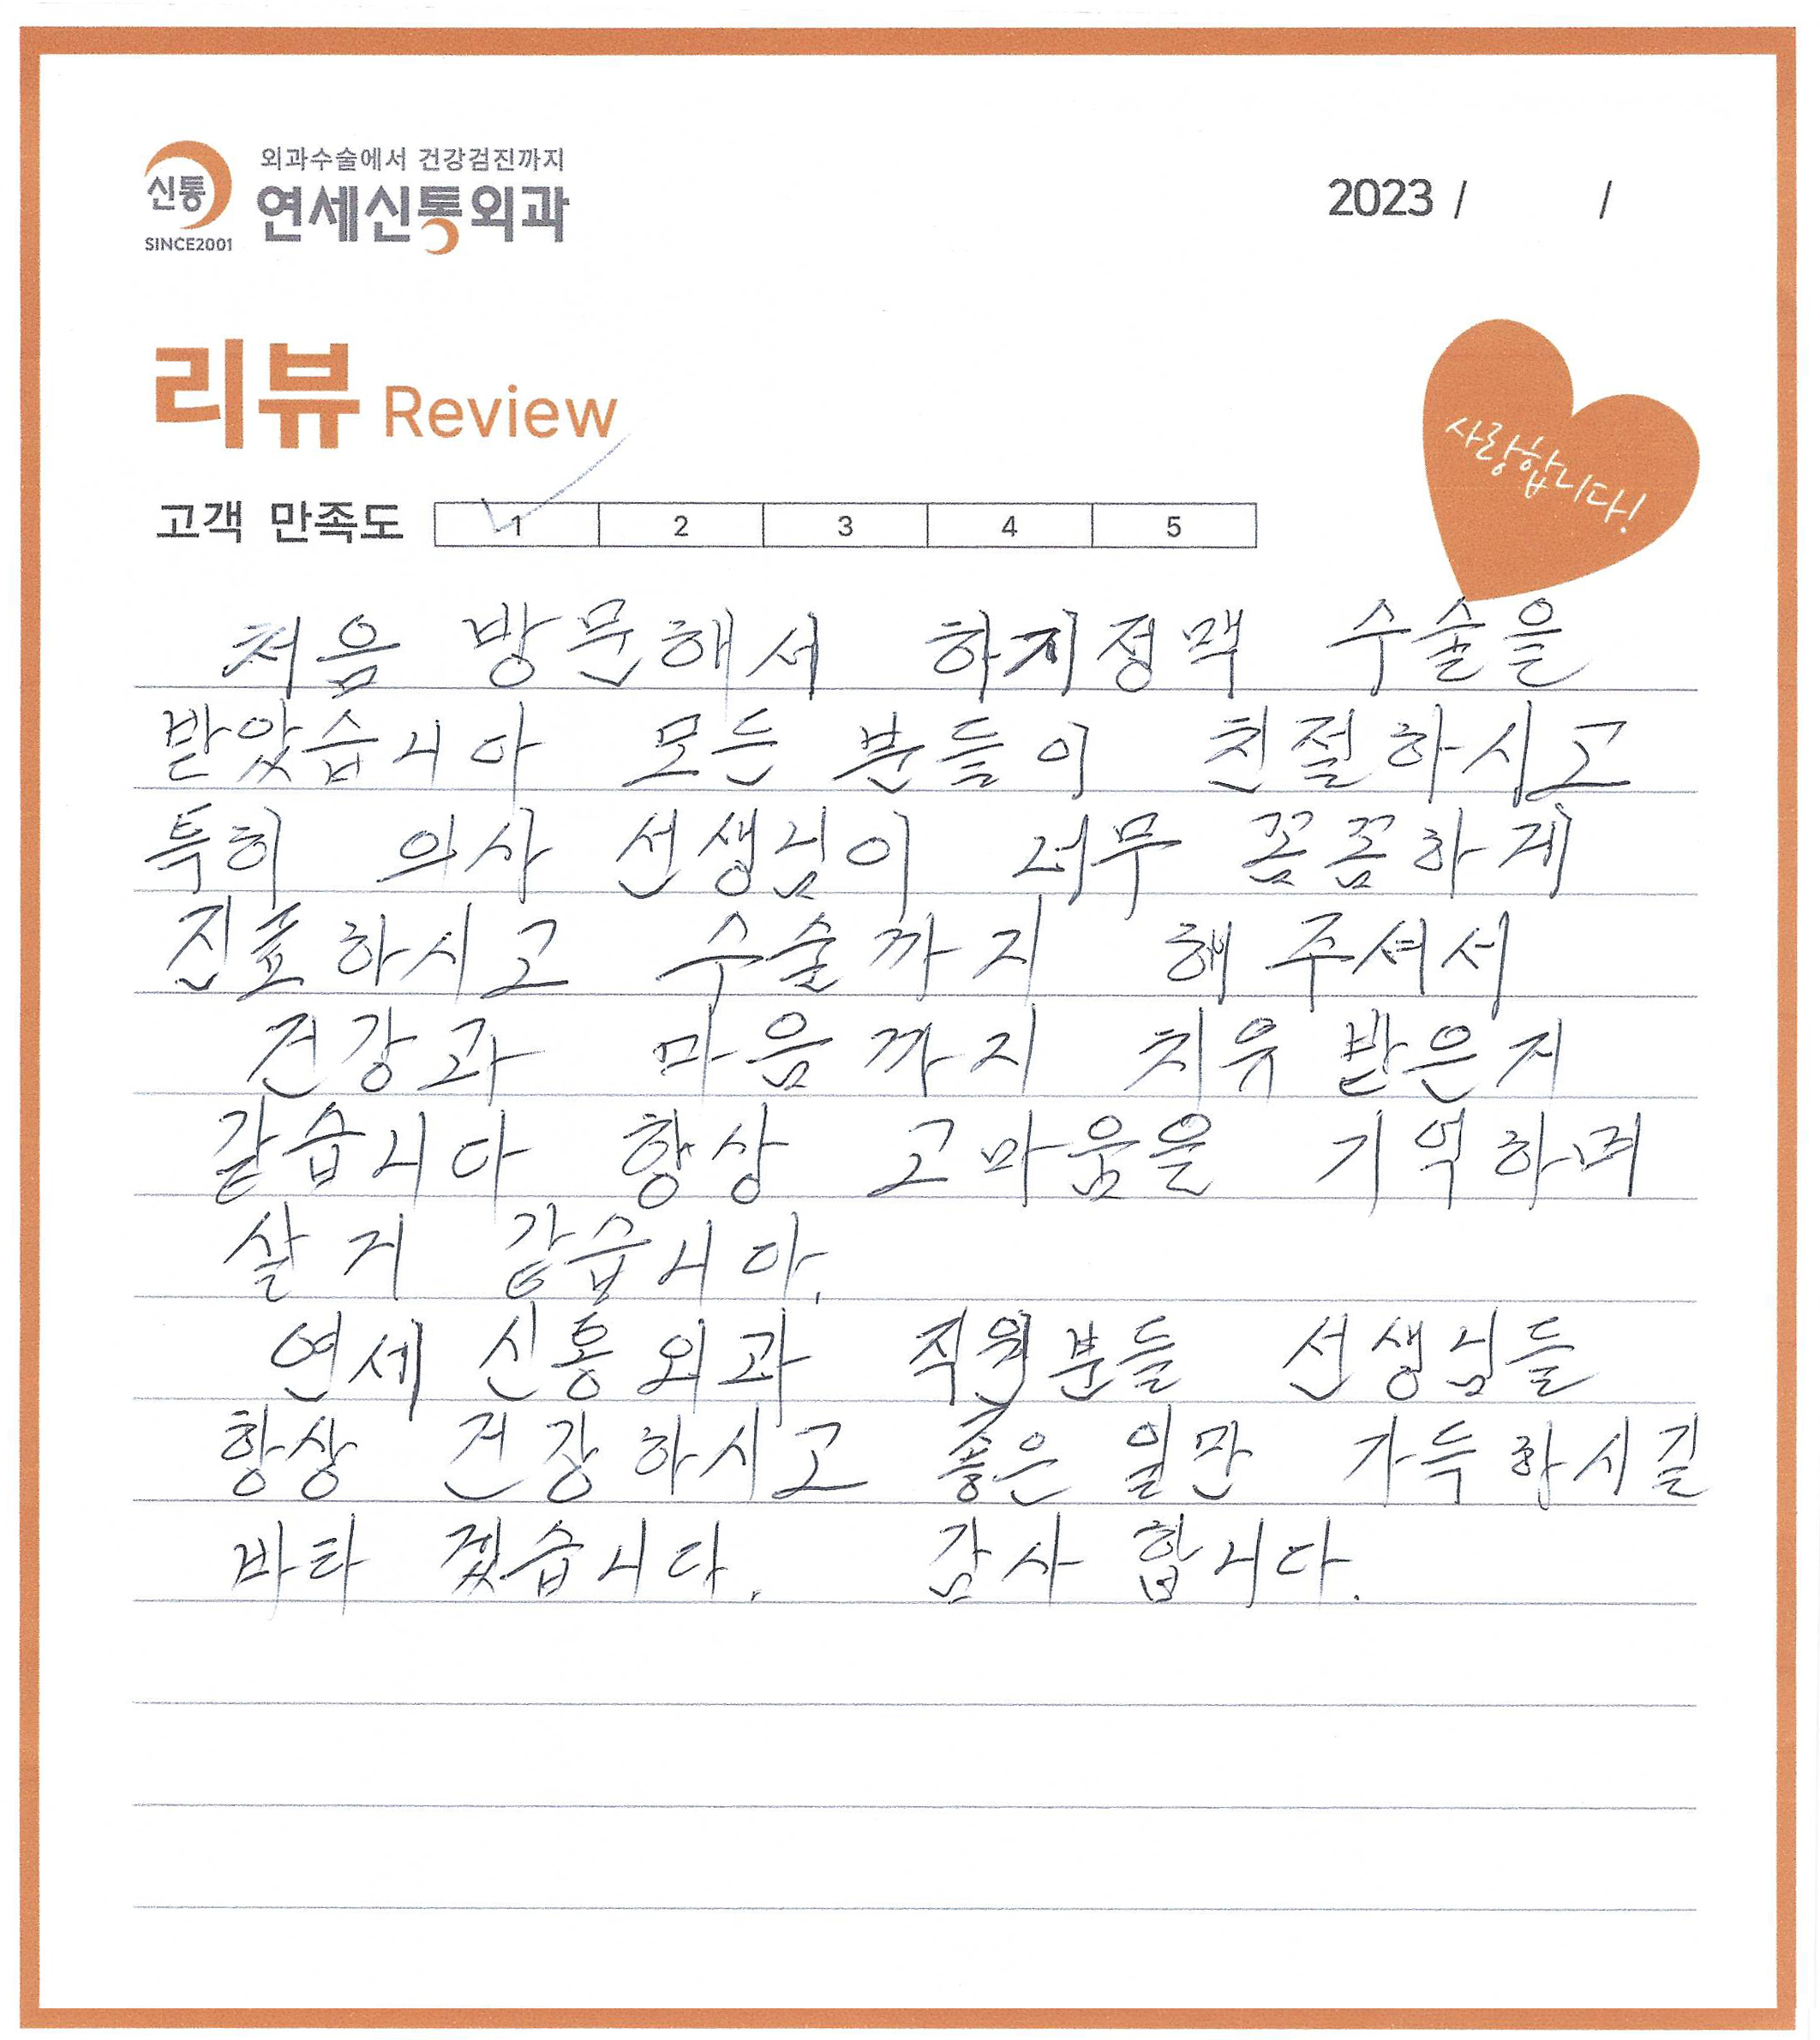 외과수술에서 건강검진까지
신통
연세신통외과
SINCE2001
2023 / /
리뷰 Review
사랑합니다!
고객 만족도 1 2 3 4 5
처음 방문해서 하지정맥 수술을
받았습니다 모든 분들이 친절하시고
특히 의사 선생님이 너무 꼼꼼하게
진료하시고 수술까지 해 주셔서
건강과 마음까지 치유 받은거
같습니다 항상 고마움을 기억하며
살거 같습니다.
연세신통외과 직원분들 선생님들
항상 건강하시고 좋은 일만 가득하시길
바라 겠습니다. 감사합니다.